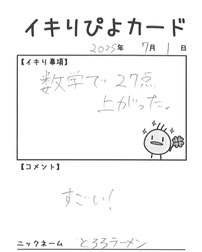 イキりぴよカード
2025年 7月 1日
【イキり事項】
数学で 27点
上がった。
【コメント】
すごい！
ニックネーム とろろラーメン